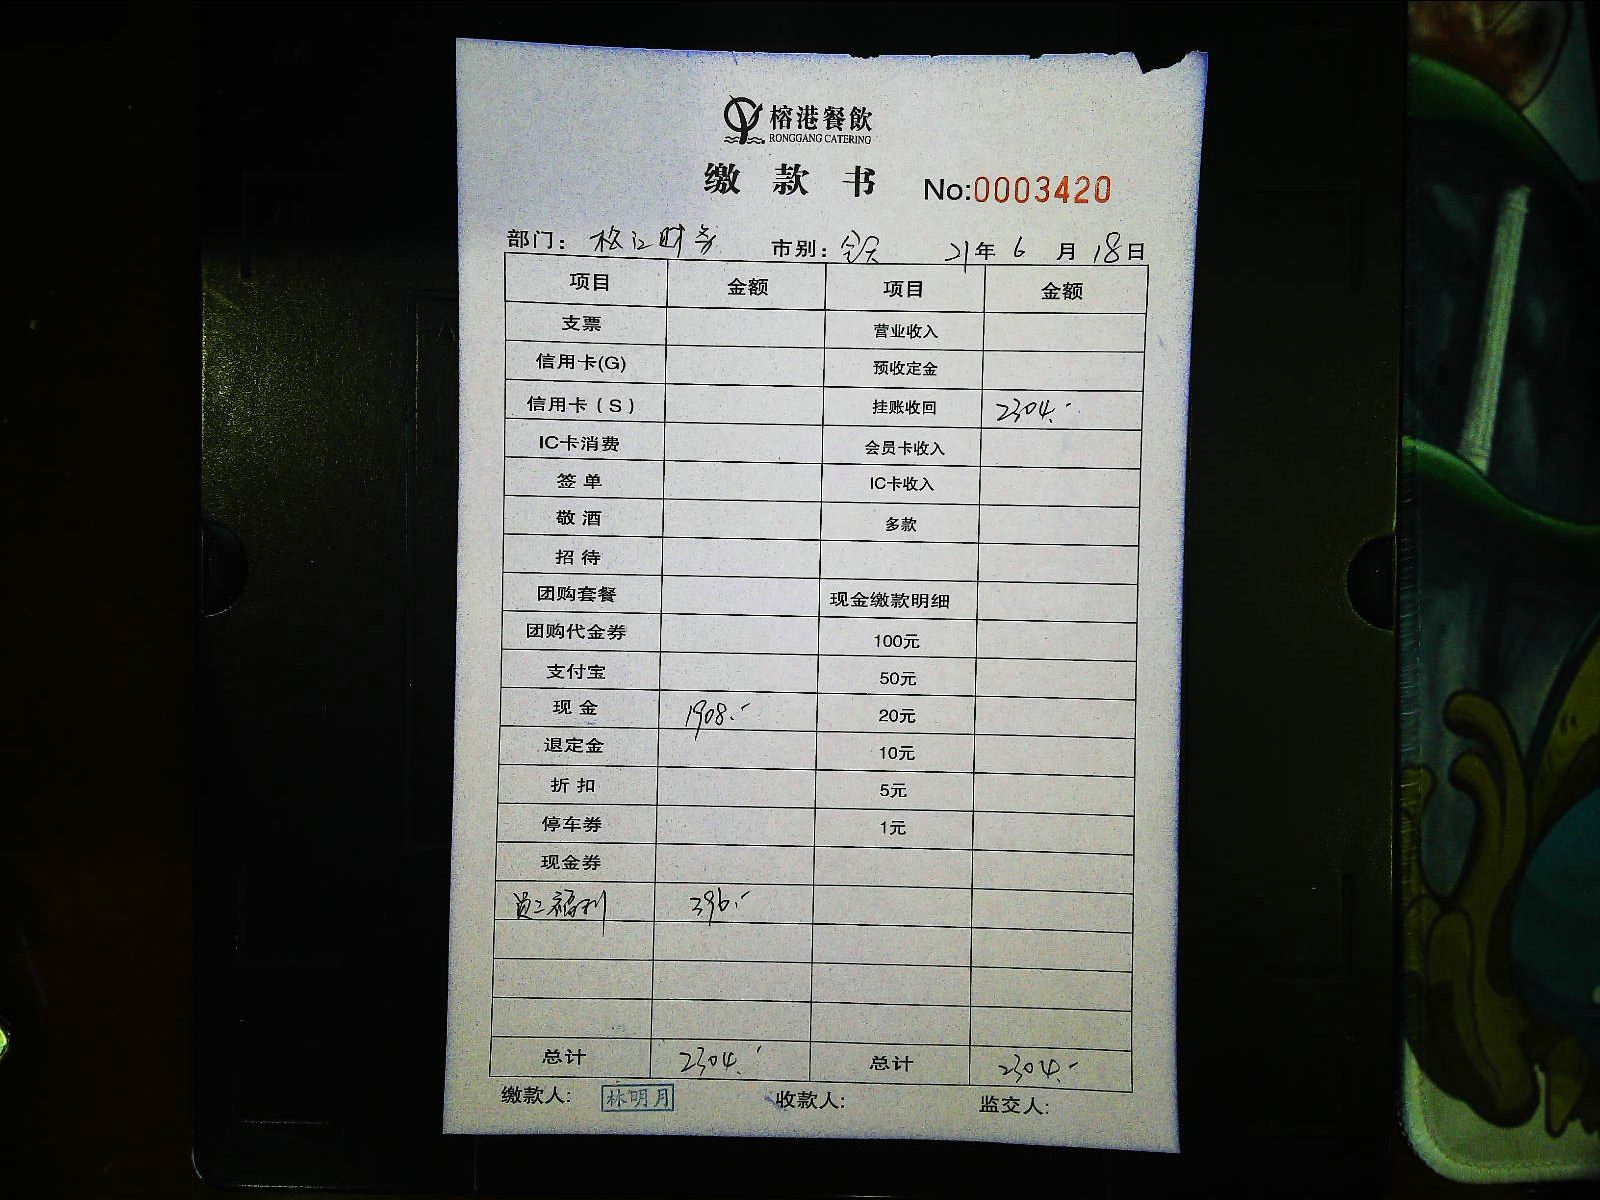 榕港餐飲
RONGGANG CATERING
缴款书 No:0003420
部门: 榕江财务 市别: 全天 21年 6 月 18日
项目 金额 项目 金额
支票 营业收入
信用卡(G) 预收定金
信用卡(S) 挂账收回 2304.-
IC卡消费 会员卡收入
签单 IC卡收入
敬酒 多款
招待
团购套餐 现金缴款明细
团购代金券 100元
支付宝 50元
现金 1908.- 20元
退定金 10元
折扣 5元
停车券 1元
现金券
员工福利 396.-
总计 2304.- 总计 2304.-
缴款人: 林明月 收款人: 监交人: